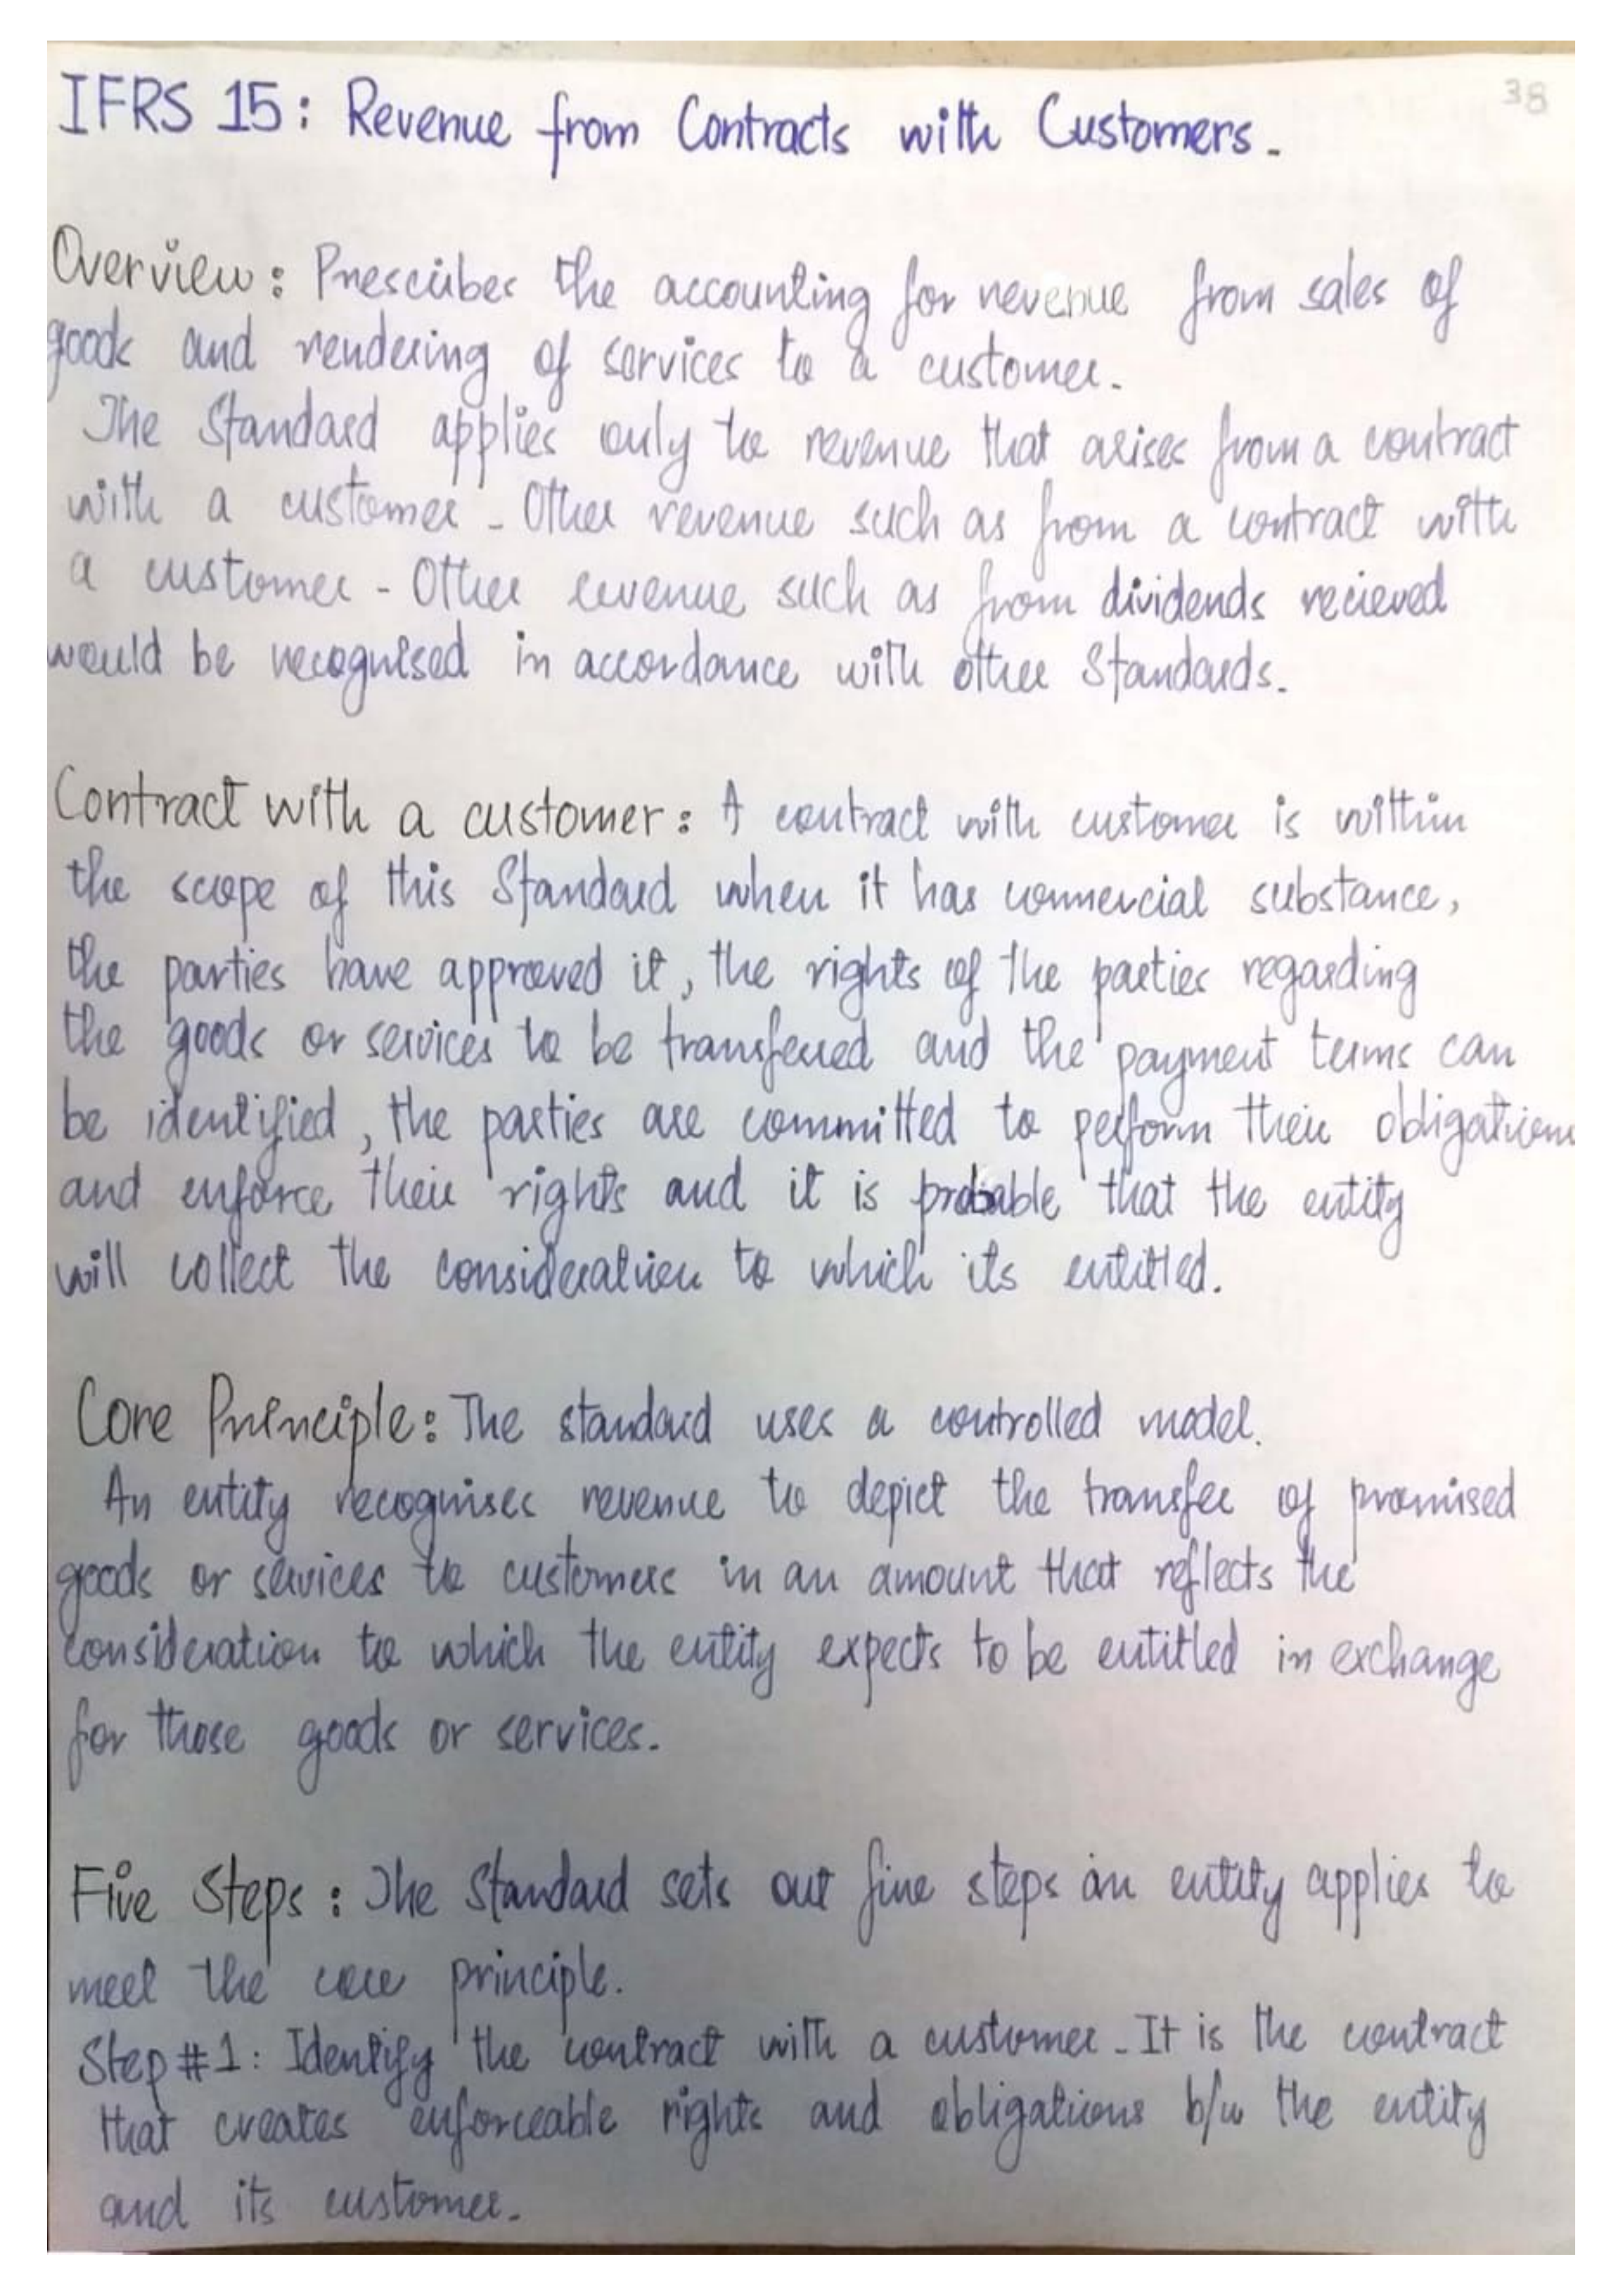 38
IFRS 15: Revenue from Contracts with Customers.
Overview: Prescribes the accounting for revenue from sales of
goods and rendering of services to a customer.
The Standard applies only to revenue that arises from a contract
with a customer. Other revenue such as from a contract with
a customer. Other revenue such as from dividends recieved
would be recognised in accordance with other Standards.
Contract with a customer: A contract with customer is within
the scope of this Standard when it has commercial substance,
the parties have approved it, the rights of the parties regarding
the goods or services to be transferred and the payment terms can
be identified, the parties are committed to perform their obligations
and enforce their rights and it is probable that the entity
will collect the consideration to which its entitled.
Core Principle: The standard uses a controlled model.
An entity recognises revenue to depict the transfer of promised
goods or services to customers in an amount that reflects the
consideration to which the entity expects to be entitled in exchange
for those goods or services.
Five Steps: The Standard sets out five steps an entity applies to
meet the core principle.
Step #1: Identify the contract with a customer. It is the contract
that creates enforceable rights and obligations b/w the entity
and its customer.